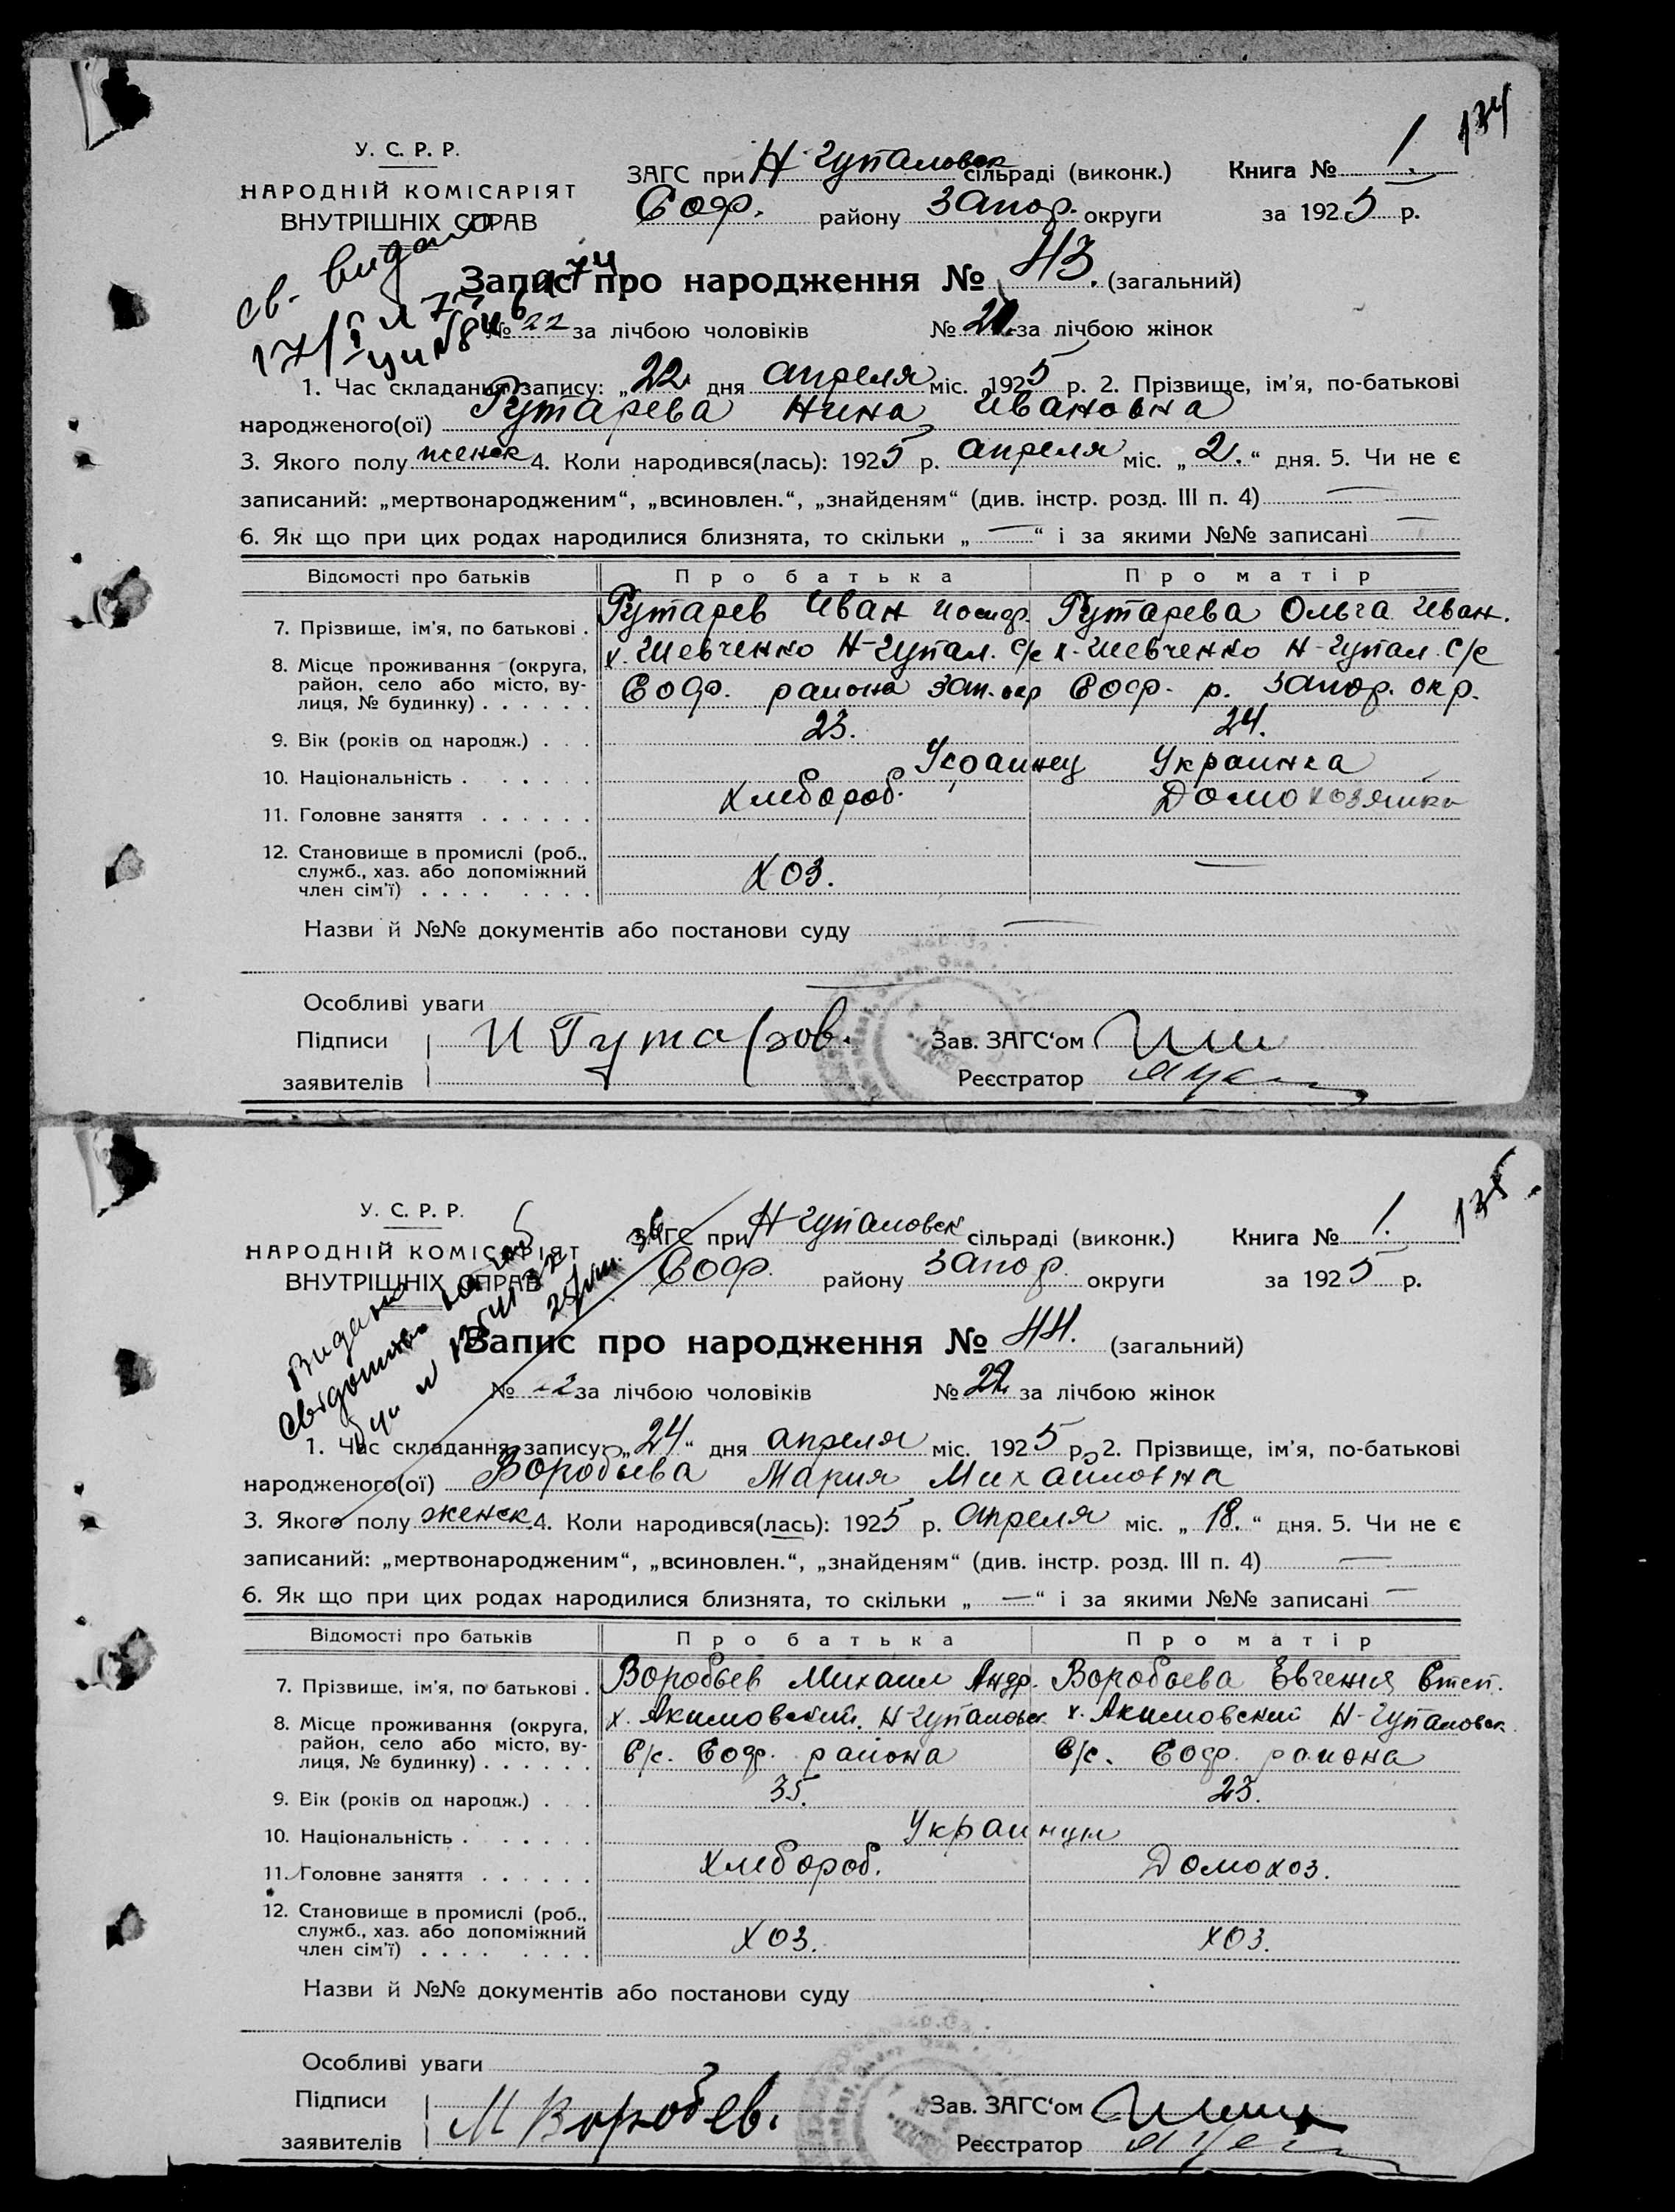 134
У. С. Р. Р.
НАРОДНІЙ КОМІСАРІЯТ
ВНУТРІШНІХ СПРАВ
ЗАГС при Н-Гупаловск сільраді (виконк.) Книга № 1.
Соф. району Запор. округи за 1925 р.
св. видано
Запис про народження № 43. (загальний)
№ 22 за лічбою чоловіків № 21 за лічбою жінок
1. Час складання запису: „22“ дня апреля міс. 1925 р. 2. Прізвище, ім’я, по-батькові
народженого(ої) Гутарева Нина Ивановна
3. Якого полу женск 4. Коли народився(лась): 1925 р. апреля міс. „2.“ дня. 5. Чи не є
записаний: „мертвонародженим“, „всиновлен.“, „знайденям“ (див. інстр. розд. III п. 4) —
6. Як що при цих родах народилися близнята, то скільки „—“ і за якими №№ записані —
Відомості про батьків Про батька Про матір
7. Прізвище, ім’я, по батькові . Гутарев Иван Гутарева Ольга Иван.
8. Місце проживання (округа, х. Шевченко Н-Гупал. С/с х. Шевченко Н-Гупал. С/с
район, село або місто, ву- Соф. района Зап. окр Соф. р. Запор. окр.
лиця, № будинку) . . . . . .
9. Вік (років од народж.) . . . 23. 24.
10. Національність . . . . . . Украинец Украинка
11. Головне заняття . . . . . . Хлебороб. Домохозяйка
12. Становище в промислі (роб.,
служб., хаз. або допоміжний Хоз. —
член сім’ї) . . . . . . . .
Назви й №№ документів або постанови суду —
Особливі уваги —
Підписи И Гутаров. Зав. ЗАГС‘ом
заявителів Реєстратор
135.
У. С. Р. Р.
НАРОДНІЙ КОМІСАРІЯТ
ВНУТРІШНІХ СПРАВ
ЗАГС при Н-Гупаловск сільраді (виконк.) Книга № 1.
Соф. району Запор. округи за 1925 р.
Видано
свідоцтво
Запис про народження № 44. (загальний)
№ 22 за лічбою чоловіків № 22 за лічбою жінок
1. Час складання запису: „24“ дня апреля міс. 1925 р. 2. Прізвище, ім’я, по-батькові
народженого(ої) Воробьева Мария Михайловна
3. Якого полу женск. 4. Коли народився(лась): 1925 р. апреля міс. „18.“ дня. 5. Чи не є
записаний: „мертвонародженим“, „всиновлен.“, „знайденям“ (див. інстр. розд. III п. 4) —
6. Як що при цих родах народилися близнята, то скільки „—“ і за якими №№ записані —
Відомості про батьків Про батька Про матір
7. Прізвище, ім’я, по батькові . Воробьев Михаил Андр. Воробьева Евгения Степ.
8. Місце проживання (округа, х. Акимовский. Н-Гупаловск х. Акимовский Н-Гупаловск
район, село або місто, ву- С/с. Соф. района С/с. Соф. района
лиця, № будинку) . . . . . .
9. Вік (років од народж.) . . . 35. 23.
10. Національність . . . . . . Украинцы
11. Головне заняття . . . . . . Хлебороб. Домохоз.
12. Становище в промислі (роб.,
служб., хаз. або допоміжний Хоз. Хоз.
член сім’ї) . . . . . . . .
Назви й №№ документів або постанови суду
Особливі уваги
Підписи М Воробьев. Зав. ЗАГС‘ом
заявителів Реєстратор